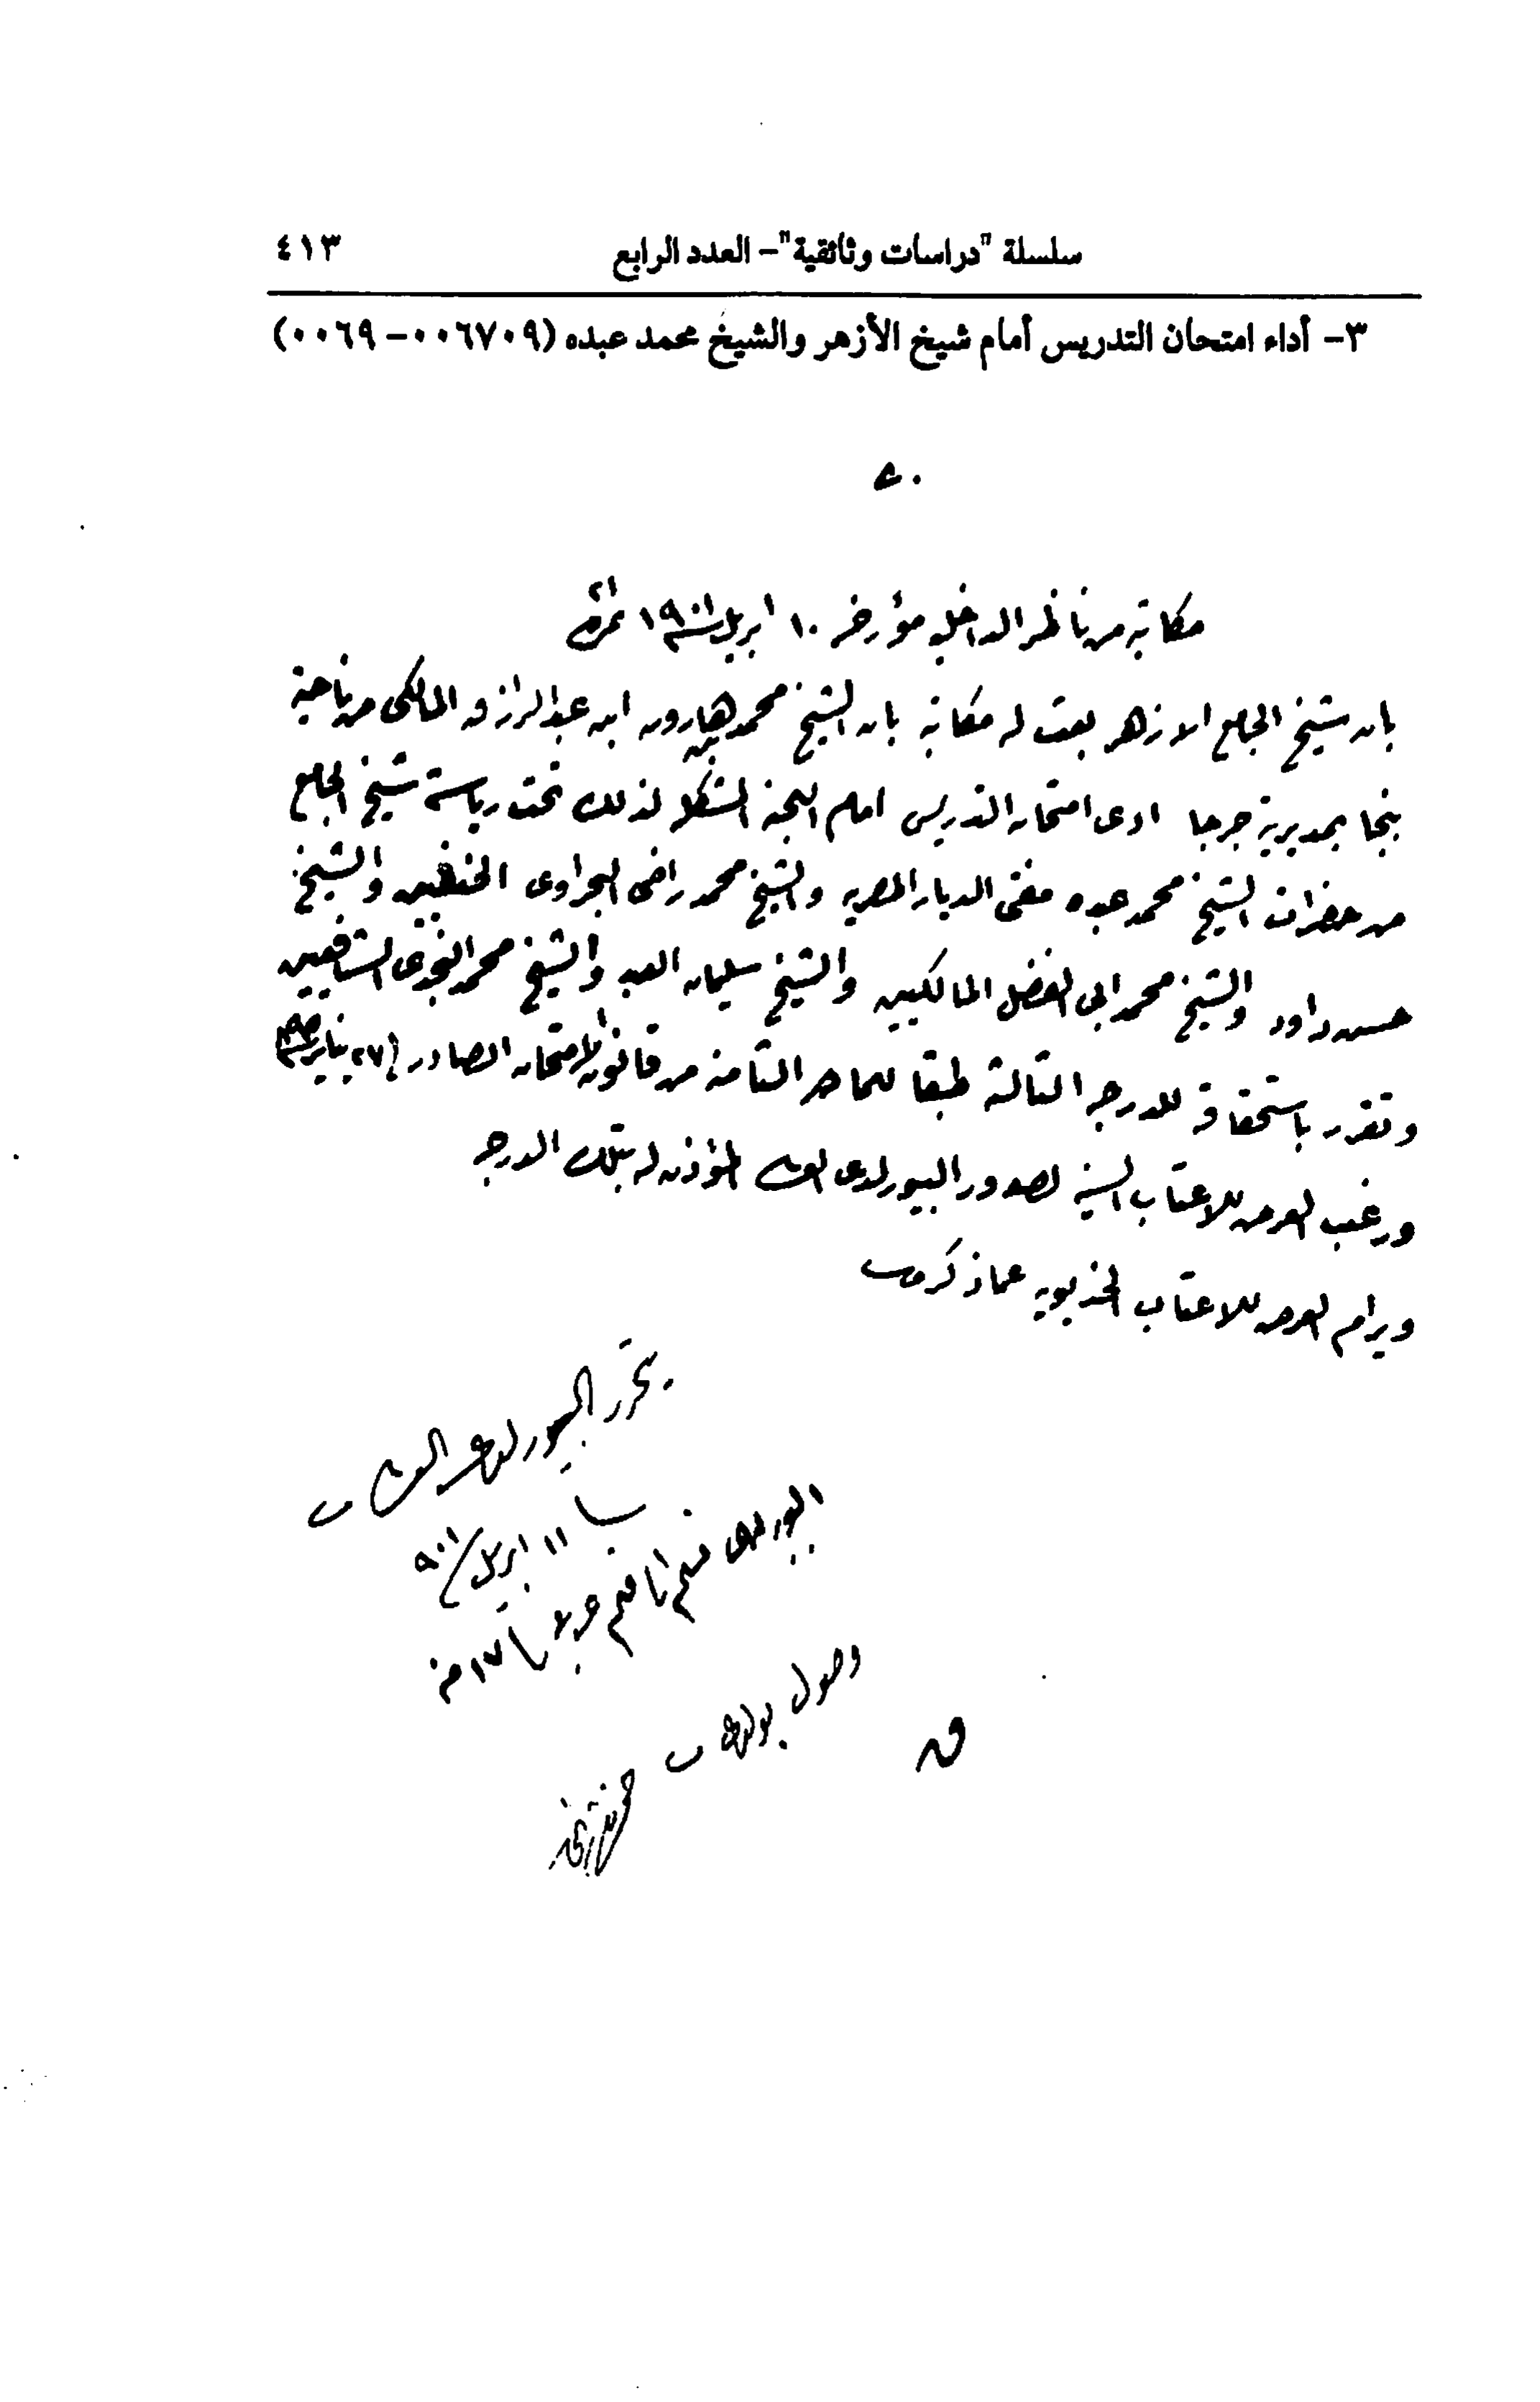 سلسلة "دراسات وثائقية" – العدد الرابع ٤١٣
٣- أداء امتحان التدريس أمام شيخ الأزهر والشيخ محمد عبده (٠٠٦٧٠٩ – ٠٠٦٩)
مكاتبة من ناظر الداخلية مؤرخه ١٠ ابريل سنة ١٩٠١ نمرة
بان شيخ الجامع الازهر بعث له مكاتبة بان الشيخ محمد هارون ابن عبد الرازق المالكى من ناحية
بنجا بمديرية جرجا ادى امتحان التدريس امام اللجنة المشكلة لذلك تحت رياسة شيخ الجامع
من حضرات الشيخ محمد عبده مفتى الديار المصريه والشيخ محمد راضى البحراوى الحنفيين والشيخ
حسن داود والشيخ محمد ابى الفضل المالكيين والشيخ سليمان العبد والشيخ محمد النجدى الشافعيين
وتقرر باستحقاقه للدرجه الثالثة طبقا للمادة الثامنة من قانون الامتحان الصادر فى ٢٧ يناير
ورغب العرض للاعتاب السنية لصدور البيورلدى العالى المؤذن له بتلك الدرجه
ويرام العرض للاعتاب الخديويه عما ذكر
يتحرر البيورلدى العالى
١١ ابريل
البيورلدى
وصول